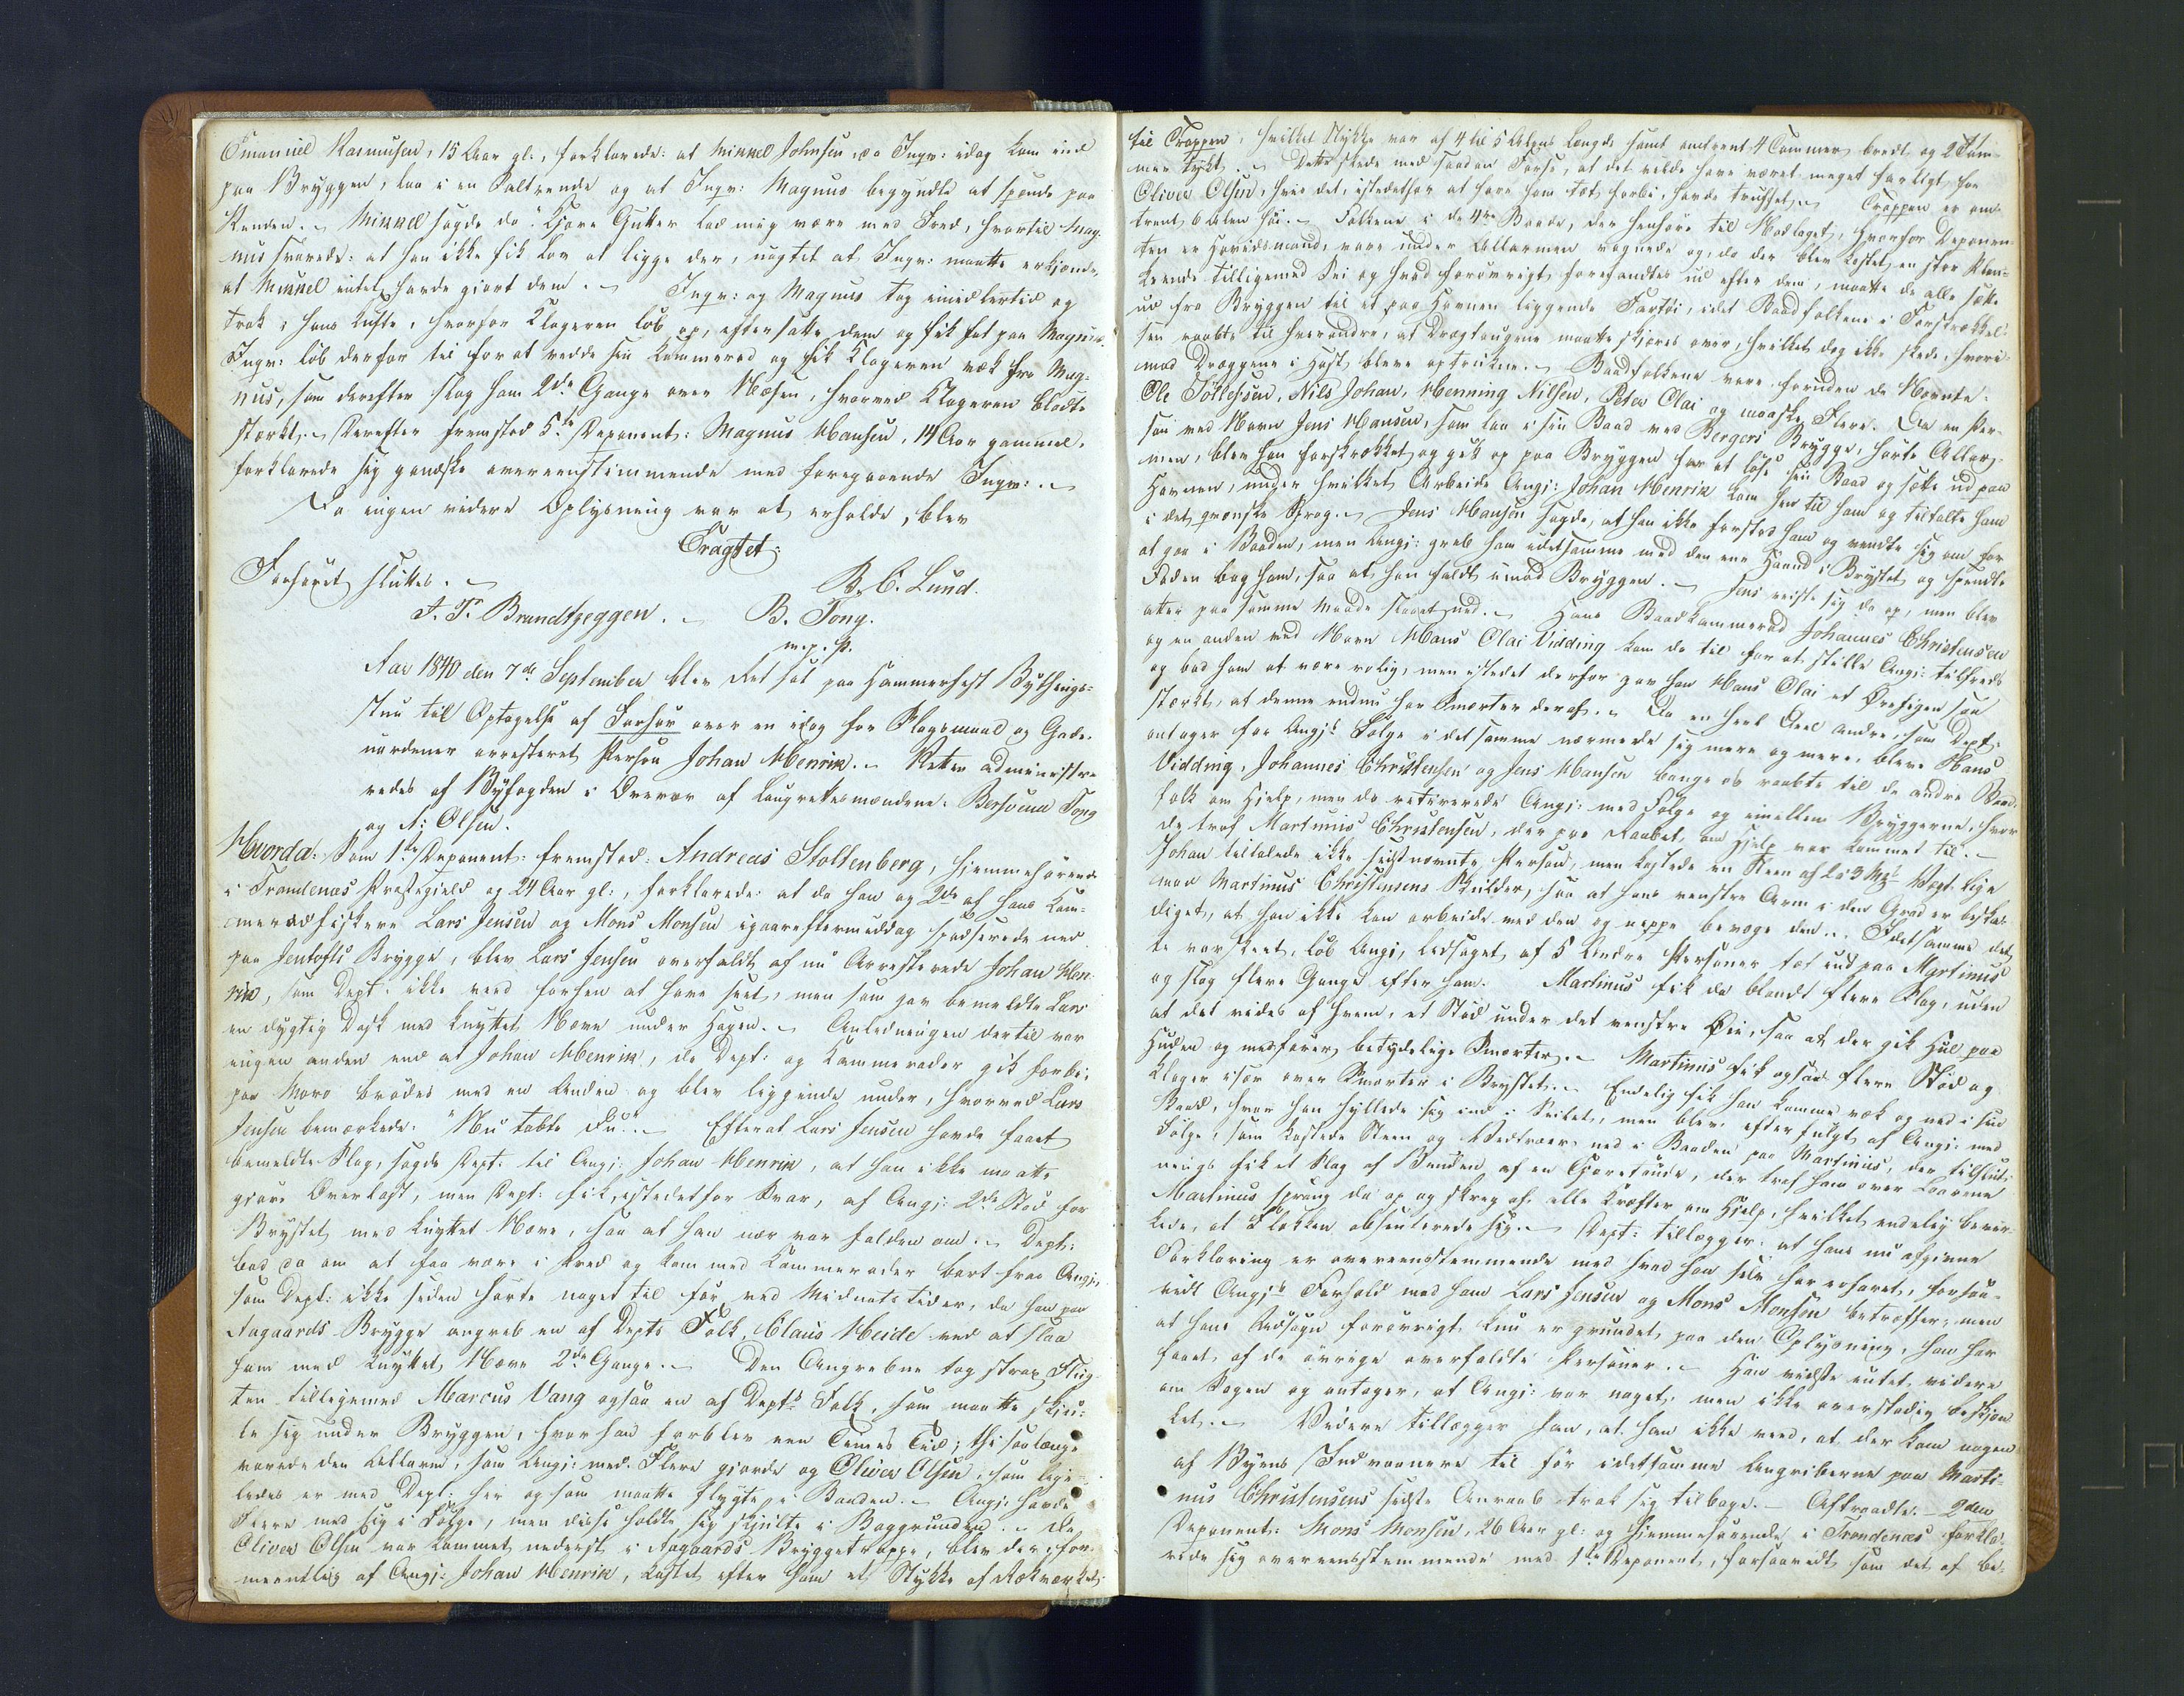 Emanuel Rasmusen, 15 Aar gl., forklarede: at Mikkel Johnsen, da Ingv: idag kom ned
paa Bryggen, laa i en Saltrende og at Ingv: Magnus begyndte at spænde paa
Renden. – Mikkel sagde da: Kjære Gutter lad mig være med Fred, hvortil Mag-
nus svarede: at han ikke fik Lov at ligge der, uagtet at Ingv: maatte erkjende,
at Mikkel intet havde gjort dem. – Ingv: og Magnus tog imidlertid og
trak i hans Kufte, hvorfor Klageren løb op, eftersatte dem og fik fat paa Magnus.
Ingv: løb derfor til for at redde sin Kammerad og fik Klageren væk fra Mag-
nus, som derefter slog ham 2de Gange over Næsen, hvorved Klageren blødte
stærkt. – Derefter fremstod 5te Deponent: Magnus Hansen, 14 Aar gammel,
forklarede sig gandske overeenstimmende med foregaaende Ingv: . –
Da ingen videre Oplysning var at erholde, blev
Eragtet:
Forhøret sluttet. –
B. C. Lund.
A. T. Brandtzeggen. – B. Tong.
m. p. P.
Aar 1840 den 7de September blev Ret sat paa Hammerfest Bythings-
stue til Optagelse af Forhør over en idag for Slagsmaal og Gade-
uordener arresteret Person Johan Henrik. – Retten administre-
redes af Byfogden i Overvær af Laugrettesmændene: Bersvend Tong
og A: Olsen.
Hvorda: Som 1ste Deponent: fremstod: Andreas Stoltenberg, hjemmehørende
i Trandenæs Præstegield og 24 Aar gl:, forklarede: at da han og 2de af hans Kam-
merad fiskere Lars Jensen og Mons Monsen igaareftermiddag spadserede ned
paa Jentofts Brygge, blev Lars Jensen overfaldt af nu Arresterede Johan Hen-
rik, som Dept: ikke veed forhen at have seet, men som gav bemeldte Lars
en dygtig Dask med knyttet Næve under Hagen. – Anledningen dertil var
ingen anden end at Johan Henrik, da Dept: og Kammerader gik forbi,
paa Moro brødes med en Anden og blev liggende under, hvorved Lars
Jensen bemærkede: "Nu tabte Du". – Efterat Lars Jensen havde faaet
bemeldte Slag, sagde Dept: til Angj: Johan Henrik, at han ikke maatte
gjøre Overlast, men Dept: fik, istedetfor Svar, af Angj: 2de Stød for
Brystet med knyttet Næve, saa at han nær var falden om. – Dept:
bad da om at faa være i Fred og kom med Kammerader bort fra Angj:
som Dept: ikke siden hørte noget til før ved Midnatstider, da han paa
Aagaards Brygge angreb en af Depts Folk, Claus Heide ved at slaa
ham med knyttet Næve 2de Gange. – Den Angrebne tog strax Flug-
ten tilligemed Marcus Vang ogsaa en af Depts Folk, som maatte skju-
le sig under Bryggen, hvor han forblev een Times Tid; thi saalænge
varede den Allarm, som Angj: med Flere gjorde og Oliver Olsen, som lige-
ledes er med Dept: her og som maatte flygte i Baaden. – Angj: havde
Flere med sig i Følge, men disse holdte sig skjulte i Baggrunden. – Da
Oliver Olsen var kommet nederst i Aagaards Bryggetrappe, blev der, for-
mentlig af Angj: Johan Henrik, kastet efter ham et Stykke af Rækværket
til Trappen, hvilket Stykke var af 4 til 5 Alens Længde samt omtrent 4 Tommer bredt og 2 Tom-
mer tykt. – Dette skede med saadan Force, at det vilde have været meget farligt for
Oliver Olsen, hvis det, istedetfor at fare ham tæt forbi, havde truffet. – Trappen er om-
trent 6 Alen høi. – Folkene i de 4re Baade, der henhøre til Notlaget, hvorfor Deponen-
ten er Høvedsmand, vare under Allarmen vognede og, da der blev kastet en stor Plan-
keende tilligemed Sei og hvad forøvrigt forefandtes ud efter dem, maatte de alle sætte
ud fra Bryggen til et paa Havnen liggende Fartøi, idet Baadfolkene i Forskrækkel-
sen raabte til hverandre, at Dragtougene maatte skjæres over, hvilket dog ikke skede, hvori-
mod Dræggene i Hast bleve optrukne. – Baadfolkene vare foruden de Nævnte:
Ole Tollefsen, Nils Johan, Henning Nilsen, Peter Olai og maaske Flere. Da en Per-
son ved Navn Jens Hansen, som laa i sin Baad ved Bergers Brygge, hørte Allar-
men, blev han forskrækket og gik op paa Bryggen for at løse sin Baad og sætte ud paa
Havnen, under hvilket Arbeide Angj: Johan Henrik kom hen til ham og tiltalte ham
i det qvænske Sprog. – Jens Hansen sagde, at han ikke forstod ham og vendte sig om for
at gaa i Baaden, men Angj: greb ham idetsamme med den ene Haand i Brystet og spændte
Foden bag ham, saa at han faldt imod Bryggen. – Jens reiste sig da op, men blev
atter paa samme Maade slaaet ned. – Hans Baadkammerad Johannes Christensen
og en anden ved Navn Hans Olai Vidding kom da til for at stille Angj: tilfreds
og bad ham at være rolig, men istedet derfor gav han Hans Olai et Ørefigen saa
stærkt, at denne endnu har Smerter deraf. – Da en heel Deel andre, som Dept:
antager for Angjs Følge i detsamme nærmede sig mere og mere, bleve Hans
Vidding, Johannes Christensen og Jens Hansen bange og raabte til de andre Baad-
folk om Hjelp, men da reterirede Angj: med Følge op imellem Bryggerne, hvor
de traf Martinus Christensen, der paa Raabet om Hjelp var kommet til. –
Johan tiltalede ikke sidstnævnte Person, men kastede en Steen af 2 a 3 Mks Vægt lige
mod Martinus Christensens Skulder, saa at hans venstre Arm i den Grad er beska-
diget, at han ikke kan arbeide med den og neppe bevæge den. – Idetsamme det-
te var skeet, løb Angj, ledsaget af 5 Andre Personer tæt ind paa Martinus
og slog flere Gange efter ham. Martinus fik da blandt flere Slag, uden
at det vides af hvem, et Stød under det venstre Øie, saa at der gik Hul paa
Huden og medfører betydelige Smerter. – Martinus fik ogsaa flere Stød og
klager især over Smerter i Brystet. – Endelig fik han komme væk og ned i sin
Baad, hvor han hyllede sig ind i Seilet, men blev efterfulgt af Angj: med
Følge, som kastede Steen og Vedtræer ned i Baaden paa Martinus, der tilslut-
nings fik et Slag af Bunden af en Tjæretønde, der traf ham over Laarene
Martinus sprang da op og skreg af alle Kræfter om Hjelp, hvilket endelig bevir-
kede, at Flokken absenterede sig. – Dept: tillægger: at hans nu afgivne
Forklaring er overeensstemmende med hvad han selv har erfaret, forsaa-
vidt Angjs Forhold mod ham Lars Jensen og Mons Monsen betræffer; men
at hans Udsagn forøvrigt kun er grundet paa den Oplysning, han har
faaet af de øvrige overfaldte Personer. – Han vidste intet videre
om Sagen og antager, at Angj: var noget, men ikke overstadig beskjæn-
ket. – Videre tillægger han, at han ikke veed, at der kom nogen
af Byens Indvaanere til før idetsamme Angriberne paa Marti-
nus Christensens sidste Anraab trak sig tilbage. – Aftraadte. – 2den
Deponent: Mons Monsen, 26 Aar gl: og hjemmehørende i Trondenæs forkla-
rede sig overeensstemmende med 1ste Deponent, forsaavidt som det af be-